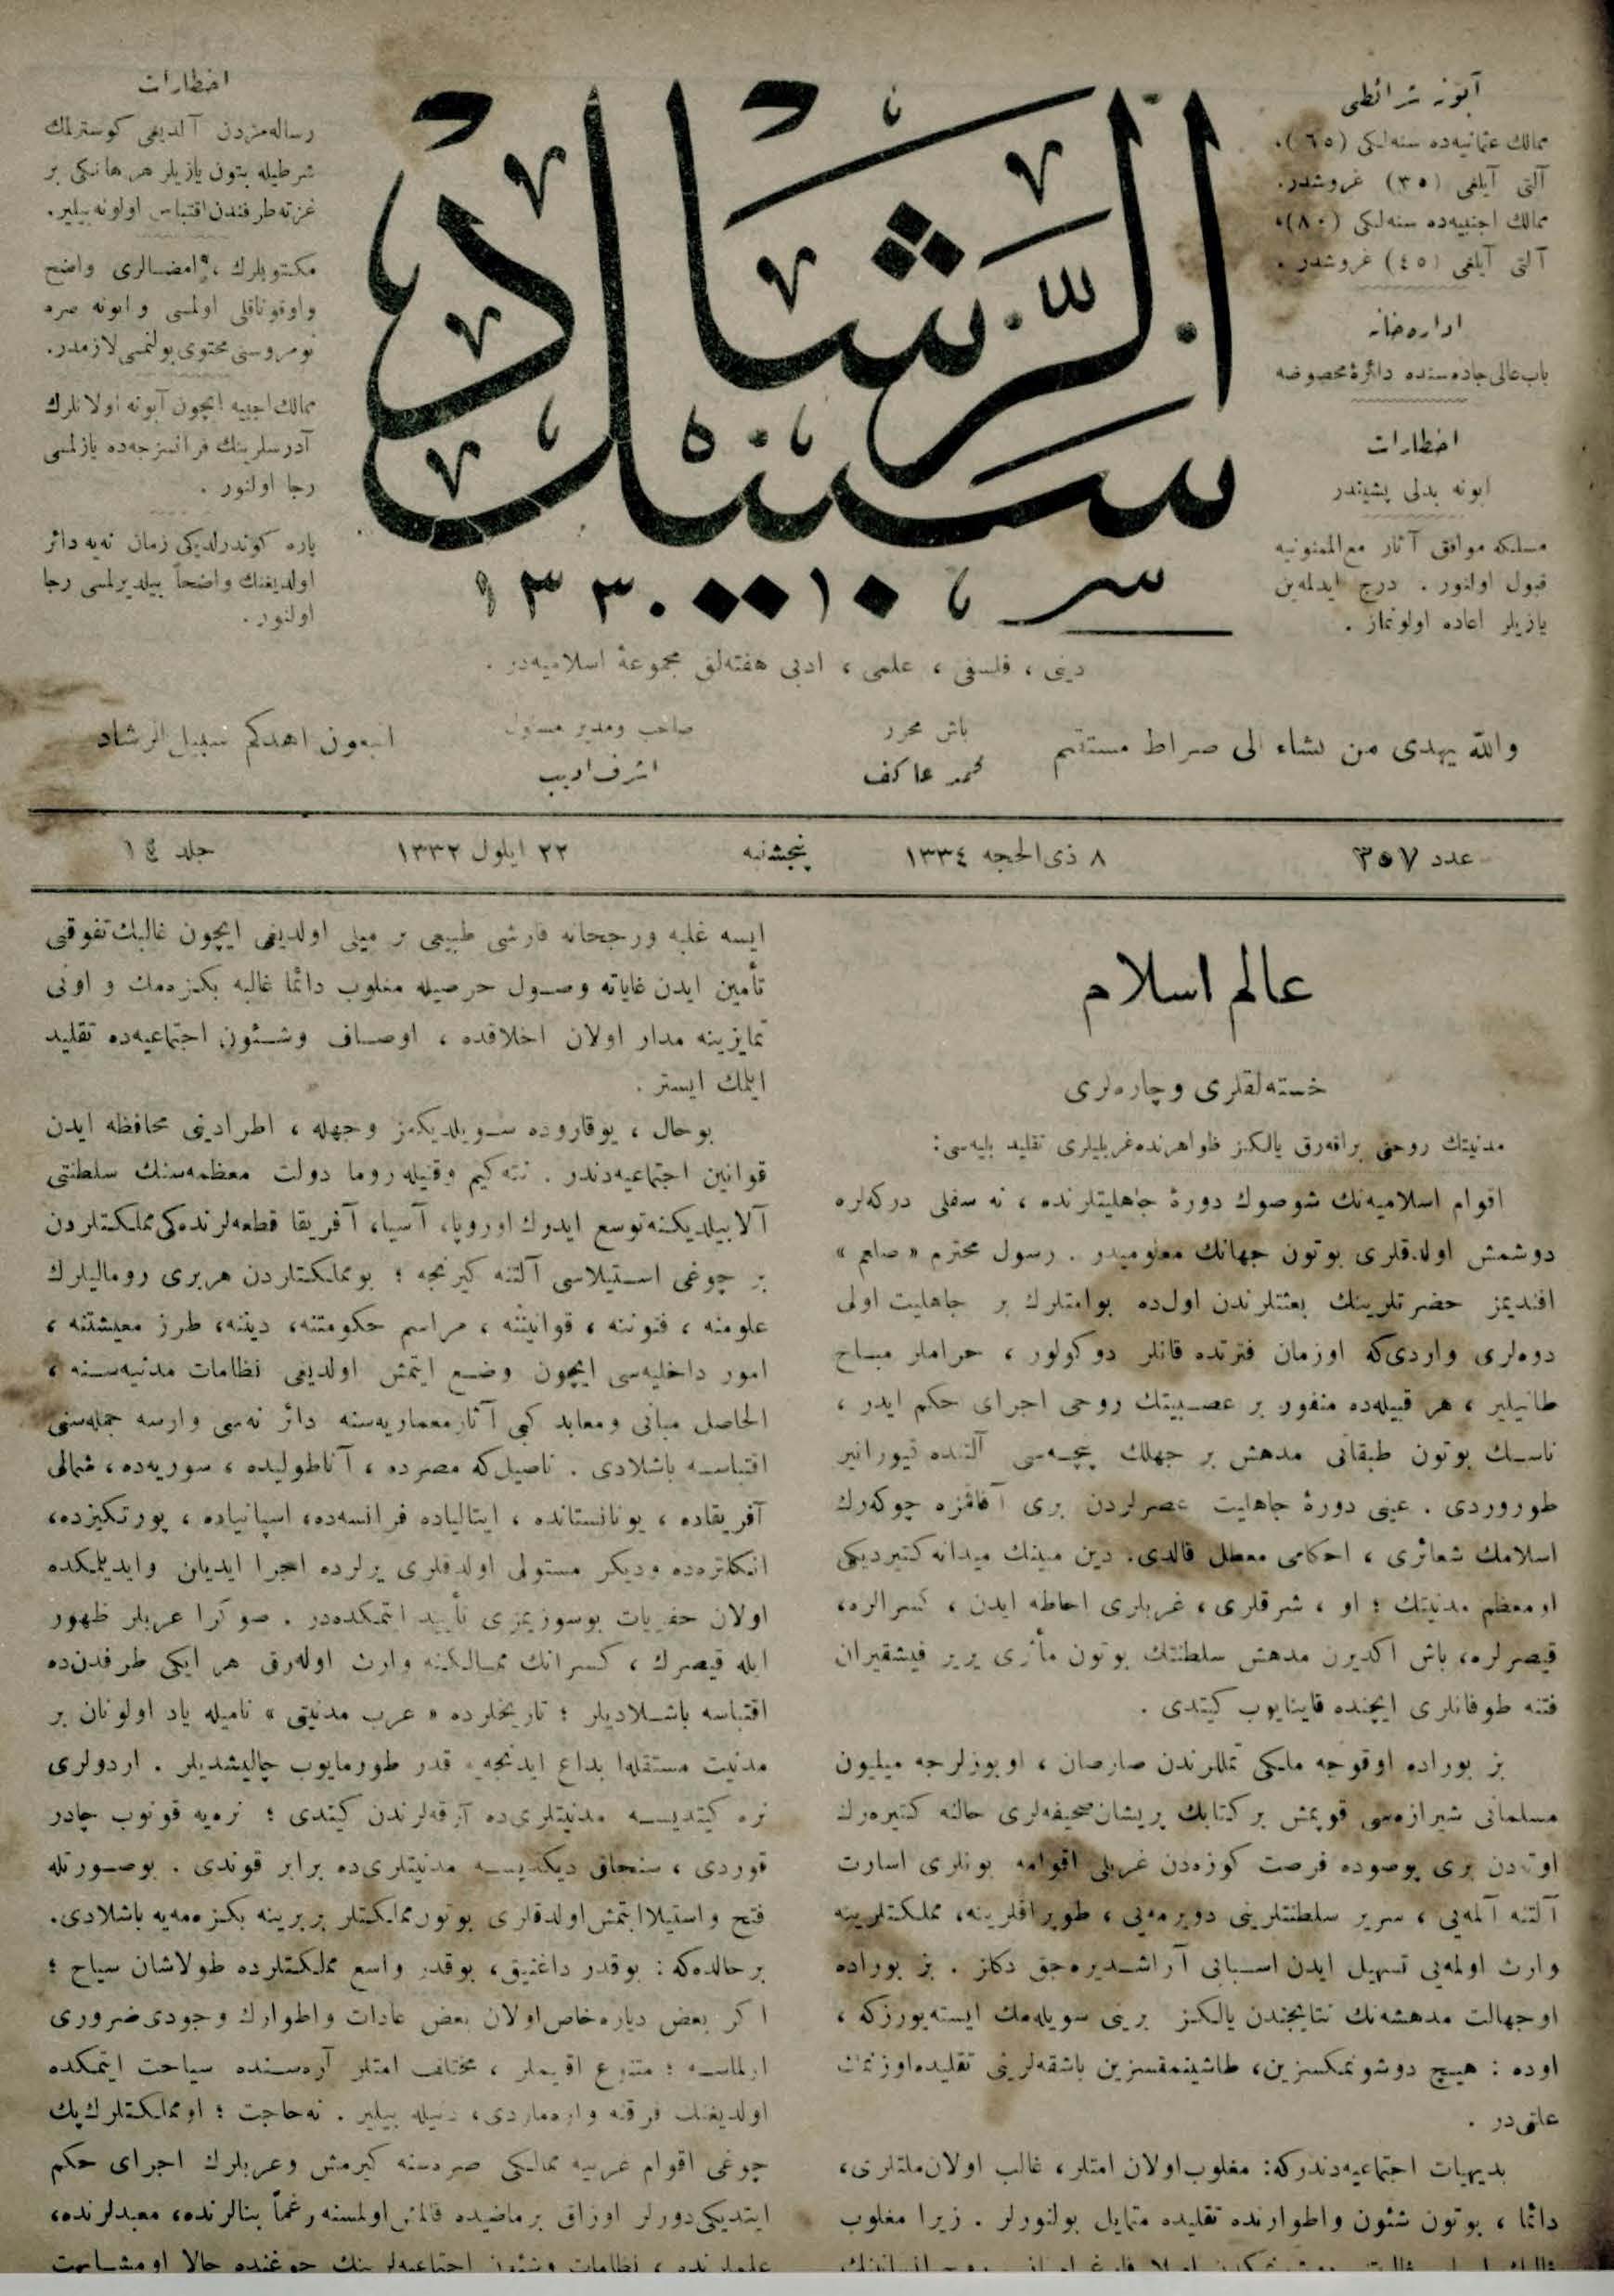 آبونه شرائطی
ممالك عثمانیه‌ده سنه‌لكی (٦٥)،
آلتی آیلغی (٣٥) غروشدر.
ممالك اجنبیه‌ده سنه‌لكی (٨٠)،
آلتی آیلغی (٤٥) غروشدر.
اداره‌خانه
باب عالی جاده‌سنده دائرهٔ مخصوصه
اخطارات
ابونه بدلی پشیندر
مسلكه موافق آثار مع الممنونیه
قبول اولنور . درج ایدلمه‌ین
یازیلر اعاده اولونماز .
سبیل الرشاد
١٣٣٠
اخطارات
رساله‌مزدن آلدیغی كوسترلمك
شرطیله بتون یازیلر هر هانكی بر
غزته طرفندن اقتباس اولونه‌بیلیر.
مكتوبلرك ، امضالری واضح
واوقوناقلی اولمسی و ابونه صره
نومروسنی محتوی بولنمسی لازمدر.
ممالك اجنبیه ایچون آبونه اولانلرك
آدرسلرینك فرانسزجه‌ده یازلمسی
رجا اولنور .
پاره كوندرلدیكی زمان نه‌یه دائر
اولدیغنك واضحاً بیلدیرلمسی رجا
اولنور.
دینی ، فلسفی ، علمی ، ادبی هفته‌لق مجموعهٔ اسلامیه‌در .
والله یهدی من یشاء الی صراط مستقیم
باش محرر
محمد عاكف
صاحب ومدیر مسئول
اشرف ادیب
اتبعون اهدكم سبیل الرشاد
عدد ٣٥٧
٨ ذی الحجه ١٣٣٤
پنجشنبه
٢٢ ایلول ١٣٣٢
جلد ١٤
عالم اسلام
خسته‌لقلری وچاره‌لری
مدنیتك روحنی براقه‌رق یالكز ظواهرنده غربلیلری تقلید بلیه‌سی:
اقوام اسلامیه‌نك شو صوك دورهٔ جاهلیتلرنده ، نه سفلی دركه‌لره
دوشمش اولدقلری بوتون جهانك معلومیدر . رسول محترم « صلعم »
افندیمز حضرتلرینك بعثتلرندن اول‌ده بو امتلرك بر جاهلیت اولی
دوره‌لری واردی‌كه اوزمان فترتده قانلر دوكولور ، حراملر مباح
طانیلیر ، هر قبیله‌ده منفور بر عصبیتك روحی اجرای حكم ایدر ،
ناسك بوتون طبقاتی مدهش بر جهلك پنچه‌سی آلتنده قیورانیر
طوروردی . عینی دورهٔ جاهلیت عصرلردن بری آفاقمزه چوكه‌رك
اسلامك شعائری ، احكامی معطل قالدی. دین مبینك میدانه كتیردیكی
او معظم مدنیتك ؛ او ، شرقلری ، غربلری احاطه ایدن ، كسرالره،
قیصرلره، باش اكدیرن مدهش سلطنتك بوتون مآثری یریر فیشقیران
فتنه طوفانلری ایچنده قاینایوب كیتدی .
بز بوراده اوقوجه ملكی تمللرندن صارصان ، او یوزلرجه میلیون
مسلمانی شیرازه‌سی قوپمش بر كتابك پریشان صحیفه‌لری حالنه كتیره‌رك
اوته‌دن بری پوصوده فرصت كوزه‌دن غربلی اقوامه بونلری اسارت
آلتنه آلمه‌یی ، سریر سلطنتلرینی دویرمه‌یی ، طوپراقلرینه، مملكتلرینه
وارث اولمه‌یی تسهیل ایدن اسبابی آراشدیره‌جق دكلز . بز بوراده
اوجهالت مدهشه‌نك نتایجندن یالكز برینی سویله‌مك ایسته‌یورزكه ،
اوده : هیچ دوشونمكسزین، طاشینمقسزین باشقه‌لرینی تقلیده اوزنمك
علتی‌در .
بدیهیات اجتماعیه‌دندركه: مغلوب اولان امتلر، غالب اولان ملتلری،
دائما ، بوتون شئون واطوارنده تقلیده متمایل بولنورلر . زیرا مغلوب
ایسه غلبه ورجحانه قارشی طبیعی بر میلی اولدیغی ایچون غالبك تفوقنی
تأمین ایدن غایاته وصول حرصیله مغلوب دائما غالبه بكزه‌مك و اونی
تمایزینه مدار اولان اخلاقده ، اوصاف وشئون اجتماعیه‌ده تقلید
ایلمك ایستر .
بوحال ، یوقاروده سویلدیكمز وجهله ، اطرادینی محافظه ایدن
قوانین اجتماعیه‌دندر . نته‌كیم وقتیله روما دولت معظمه‌سنك سلطنتی
آلابیلدیكنه توسع ایدرك اوروپا، آسیا، آفریقا قطعه‌لرنده‌كی مملكتلردن
بر چوغی استیلاسی آلتنه كیرنجه ؛ بومملكتلردن هربری رومالیلرك
علومنه ، فنوننه ، قوانیننه ، مراسم حكومتنه، دیننه، طرز معیشتنه ،
امور داخلیه‌سی ایچون وضع ایتمش اولدیغی نظامات مدنیه‌سنه ،
الحاصل مبانی ومعابد كبی آثار معماریه‌سنه دائر نه‌سی وارسه جمله‌سنی
اقتباسه باشلادی . ناصیل‌كه مصرده ، آناطولیده ، سوریه‌ده، شمالی
آفریقاده ، یونانستانده ، ایتالیاده فرانسه‌ده، اسپانیاده ، پورتكیزده،
انكلتره‌ده ودیكر مستولی اولدقلری یرلرده اجرا ایدیلن وایدیلمكده
اولان حفریات بوسوزیمزی تأیید ایتمكده‌در . صوكرا عربلر ظهور
ایله قیصرك ، كسرانك ممالكینه وارث اوله‌رق هر ایكی طرفدن‌ده
اقتباسه باشلادیلر ؛ تاریخلرده « عرب مدنیتی » نامیله یاد اولونان بر
مدنیت مستقله ابداع ایدنجه‌یه قدر طورمایوب چالیشدیلر . اردولری
نره‌یه كیتدیسه مدنیتلری‌ده آرقه‌لرندن كیتدی ؛ نره‌یه قونوب چادر
قوردی ، سنجاق دیكدیسه مدنیتلری‌ده برابر قوندی . بوصورتله
فتح واستیلا ایتمش اولدقلری بوتون مملكتلر بربرینه بكزه‌مه‌یه باشلادی.
بر حالده‌كه : بوقدر داغنیق، بوقدر واسع مملكتلرده طولاشان سیاح ؛
اكر بعض دیاره خاص اولان بعض عادات واطوارك وجودی ضروری
اولماسه ؛ متنوع اقلیملر ، مختلف امتلر آره‌سنده سیاحت ایتمكده
اولدیغنك فرقنه واره‌مازدی، دنیله بیلیر . نه‌حاجت ؛ او مملكتلرك پك
چوغی اقوام غربیه ممالكی صره‌سنه كیرمش وعربلرك اجرای حكم
ایتدیكی دورلر اوزاق بر ماضیده قالمش اولمسنه رغماً بنالرنده، معبدلرنده،
علملرنده ، نظامات وشئون اجتماعیه‌لرینك چوغنده حالا او مشابهت